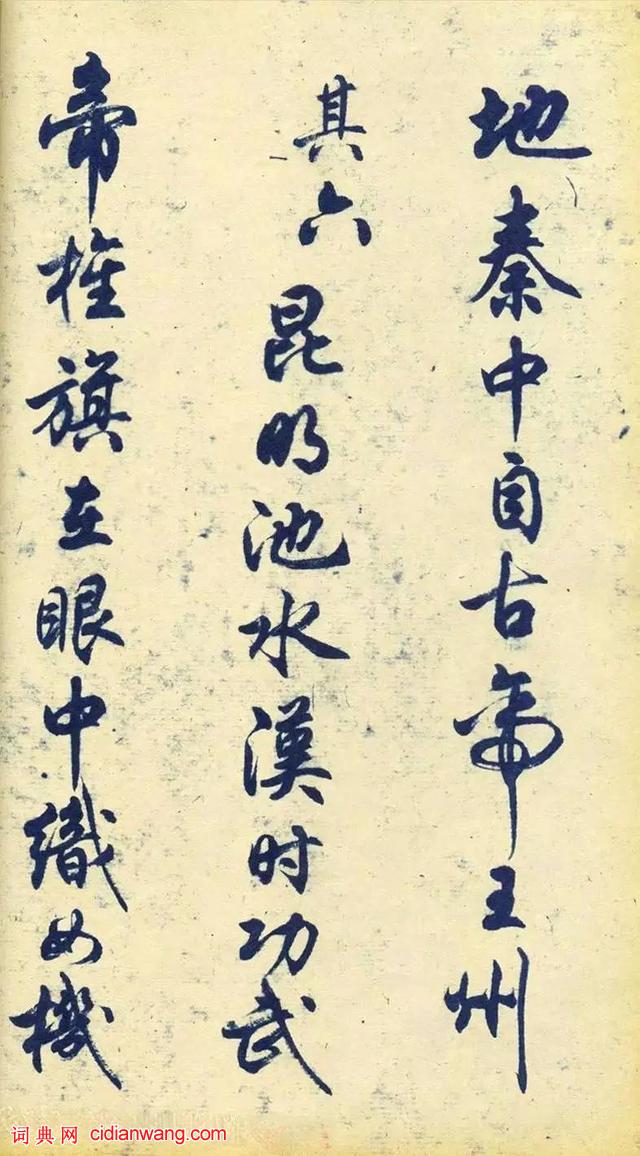 地秦中自古帝王州
其六
昆明池水漢时功武
帝旌旗在眼中織女機
词典网 cidianwang.com